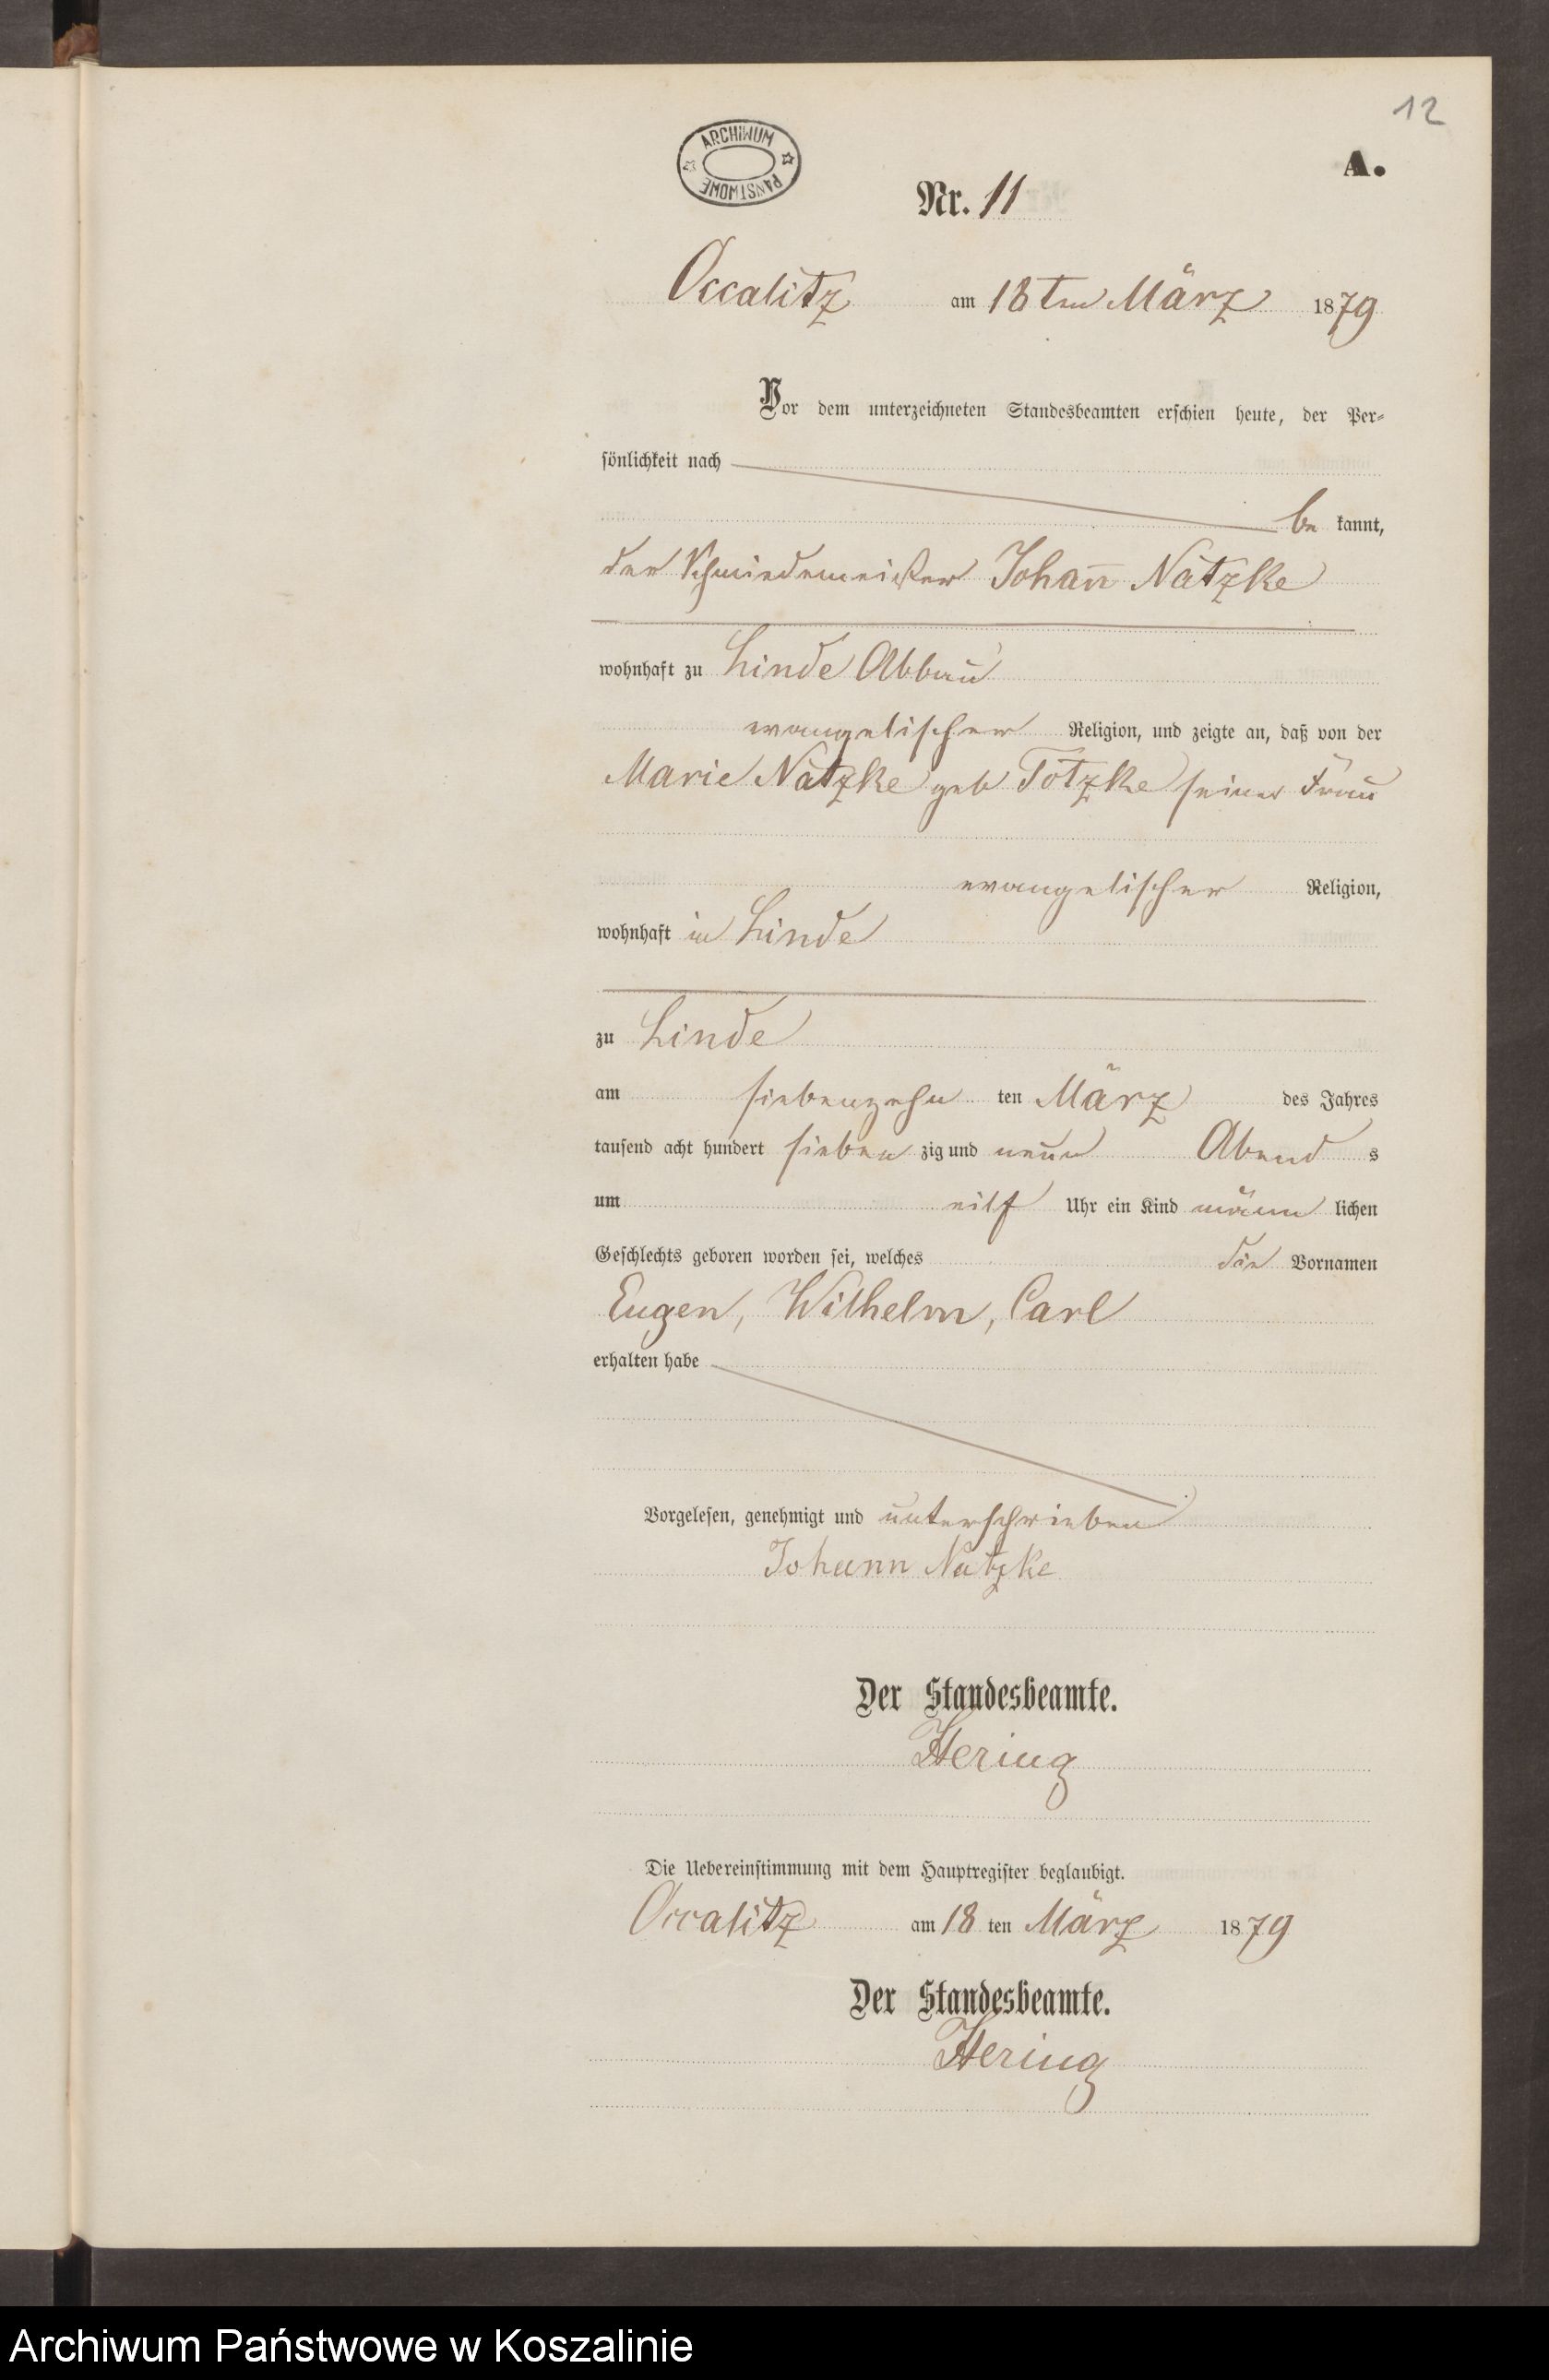 12
ARCHIWUM PAŃSTWOWE
A.
Nr. 11
Occalitz am 18ten März 1879
Vor dem unterzeichneten Standesbeamten erschien heute, der Per-
sönlichkeit nach
be kannt,
der Schmiedemeister Johañ Natzke
wohnhaft zu Linde Abbau
evangelischer Religion, und zeigte an, daß von der
Marie Natzke geb Totzke seiner Frau
evangelischer Religion,
wohnhaft in Linde
zu Linde
am siebenzehn ten März des Jahres
tausend acht hundert sieben zig und neun Abend s
um eilf Uhr ein Kind männ lichen
Geschlechts geboren worden sei, welches die Vornamen
Eugen, Wilhelm, Carl
erhalten habe
Vorgelesen, genehmigt und unterschrieben
Johann Natzke
Der Standesbeamte.
Hering
Die Uebereinstimmung mit dem Hauptregister beglaubigt.
Occalitz am 18 ten März 1879
Der Standesbeamte.
Hering
Archiwum Państwowe w Koszalinie